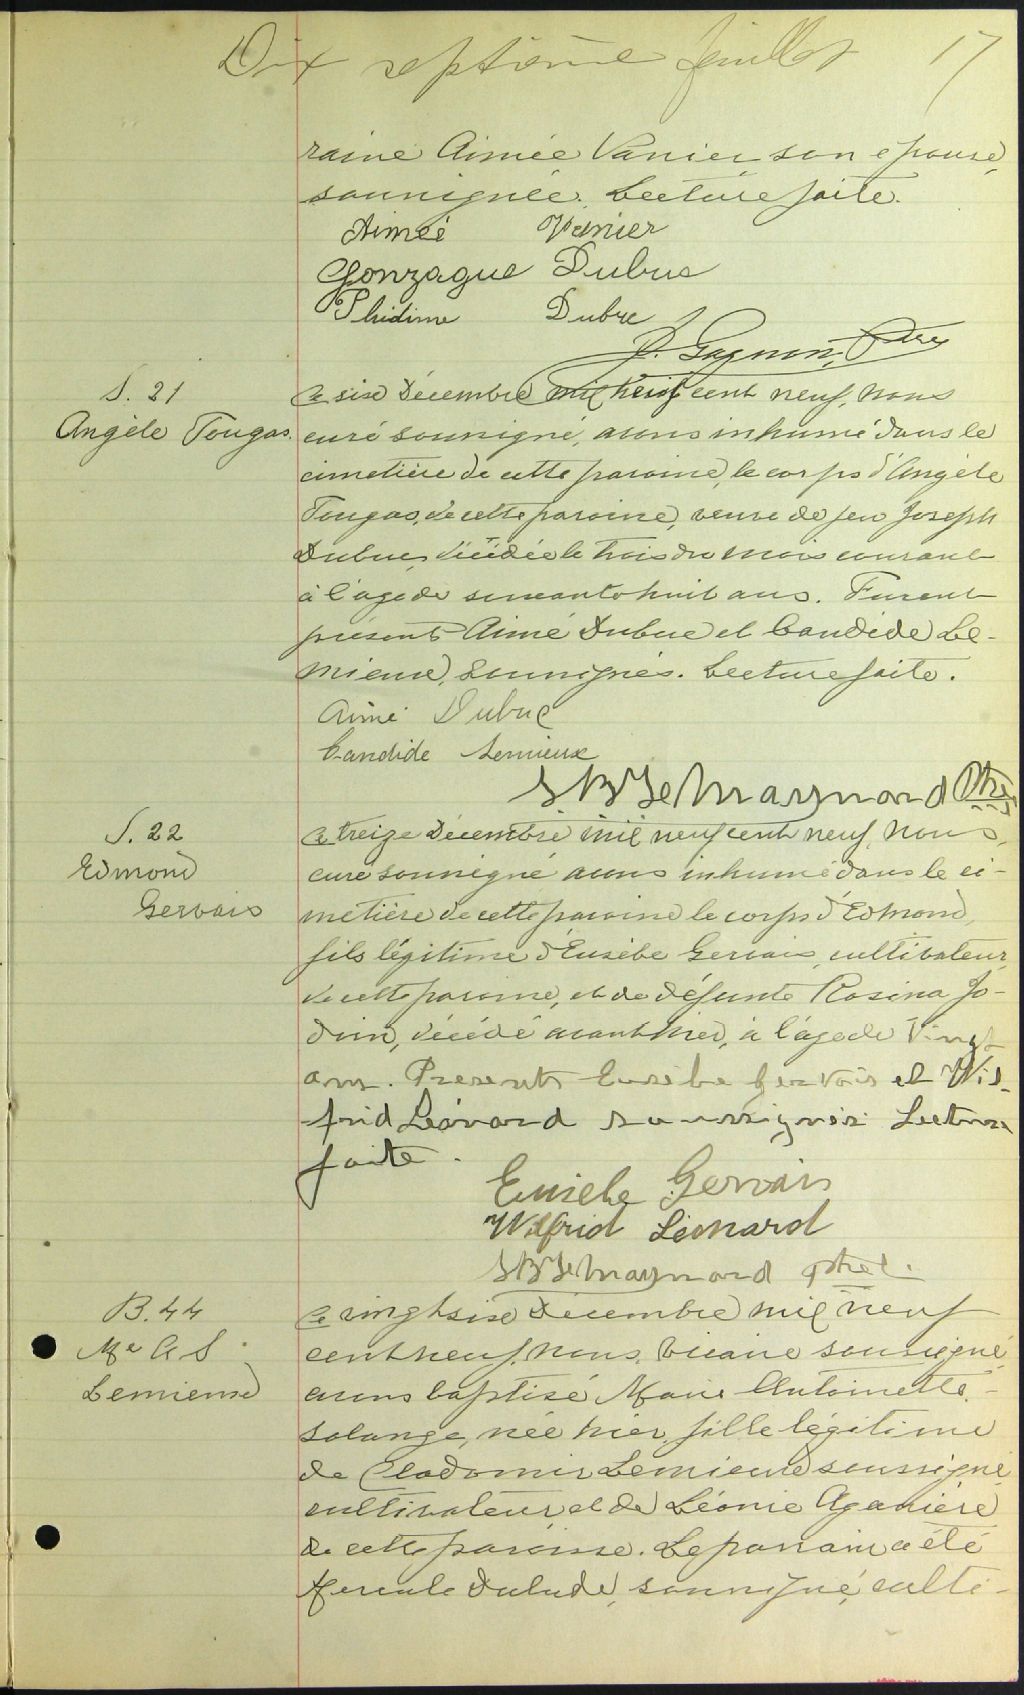 Dix septième feuillet 17
raine Aimée Vanier son épouse,
soussignée. Lecture faite.
Aimée Vanier
Gonzague Dubuc
Phidime Dubuc
J. Gagnon, Ptre
S. 21
Angèle Tougas.
Ce six Décembre mil neuf cent neuf, nous
curé soussigné, avons inhumé dans le
cimetière de cette paroisse, le corps d'Angèle
Tougas, de cette paroisse, veuve de feu Joseph
Dubuc, décédée le trois du mois courant
à l'age de soixante huit ans. Furent
présents Aimé Dubuc et Candide Le-
mieux, soussignés. Lecture faite.
Aimé Dubuc
Candide Lemieux
Maynard Ptre
S. 22
Edmond
Gervais
Ce treize Décembre mil neuf cent neuf, nous,
curé soussigné avons inhumé dans le ci-
metière de cette paroisse le corps d'Edmond,
fils légitime d'Eusèbe Gervais, cultivateur,
de cette paroisse, et de défunte Rosina Jo-
doin, décédé avant hier, à l'age de vingt
ans. Presents Eusèbe Gervais et Wil-
frid Léonard soussignés Lecture
faite.
Eusèbe Gervais
Wilfrid Léonard
Maynard ptre.
B. 44
Me A S
Lemieux
Ce vingt six Décembre mil neuf
cent neuf, nous, vicaire soussigné,
avons baptisé Marie Antoinette-
Solange, née hier, fille légitime
de Clodomir Lemieux soussigné
cultivateur et de Léonie Aganière
de cette paroisse. Le parrain a été
Hercule Dalude, soussigné, culti-